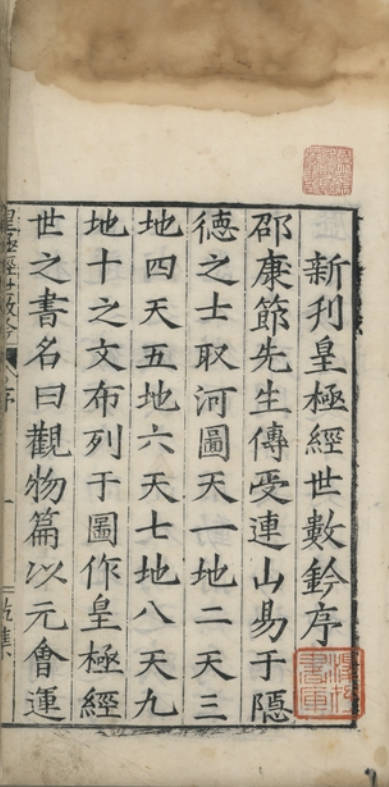 新刊皇極經世數鈐序
邵康節先生傳受連山易于隱
德之士取河圖天一地二天三
地四天五地六天七地八天九
地十之文布列于圖作皇極經
世之書名曰觀物篇以元會運
序
一